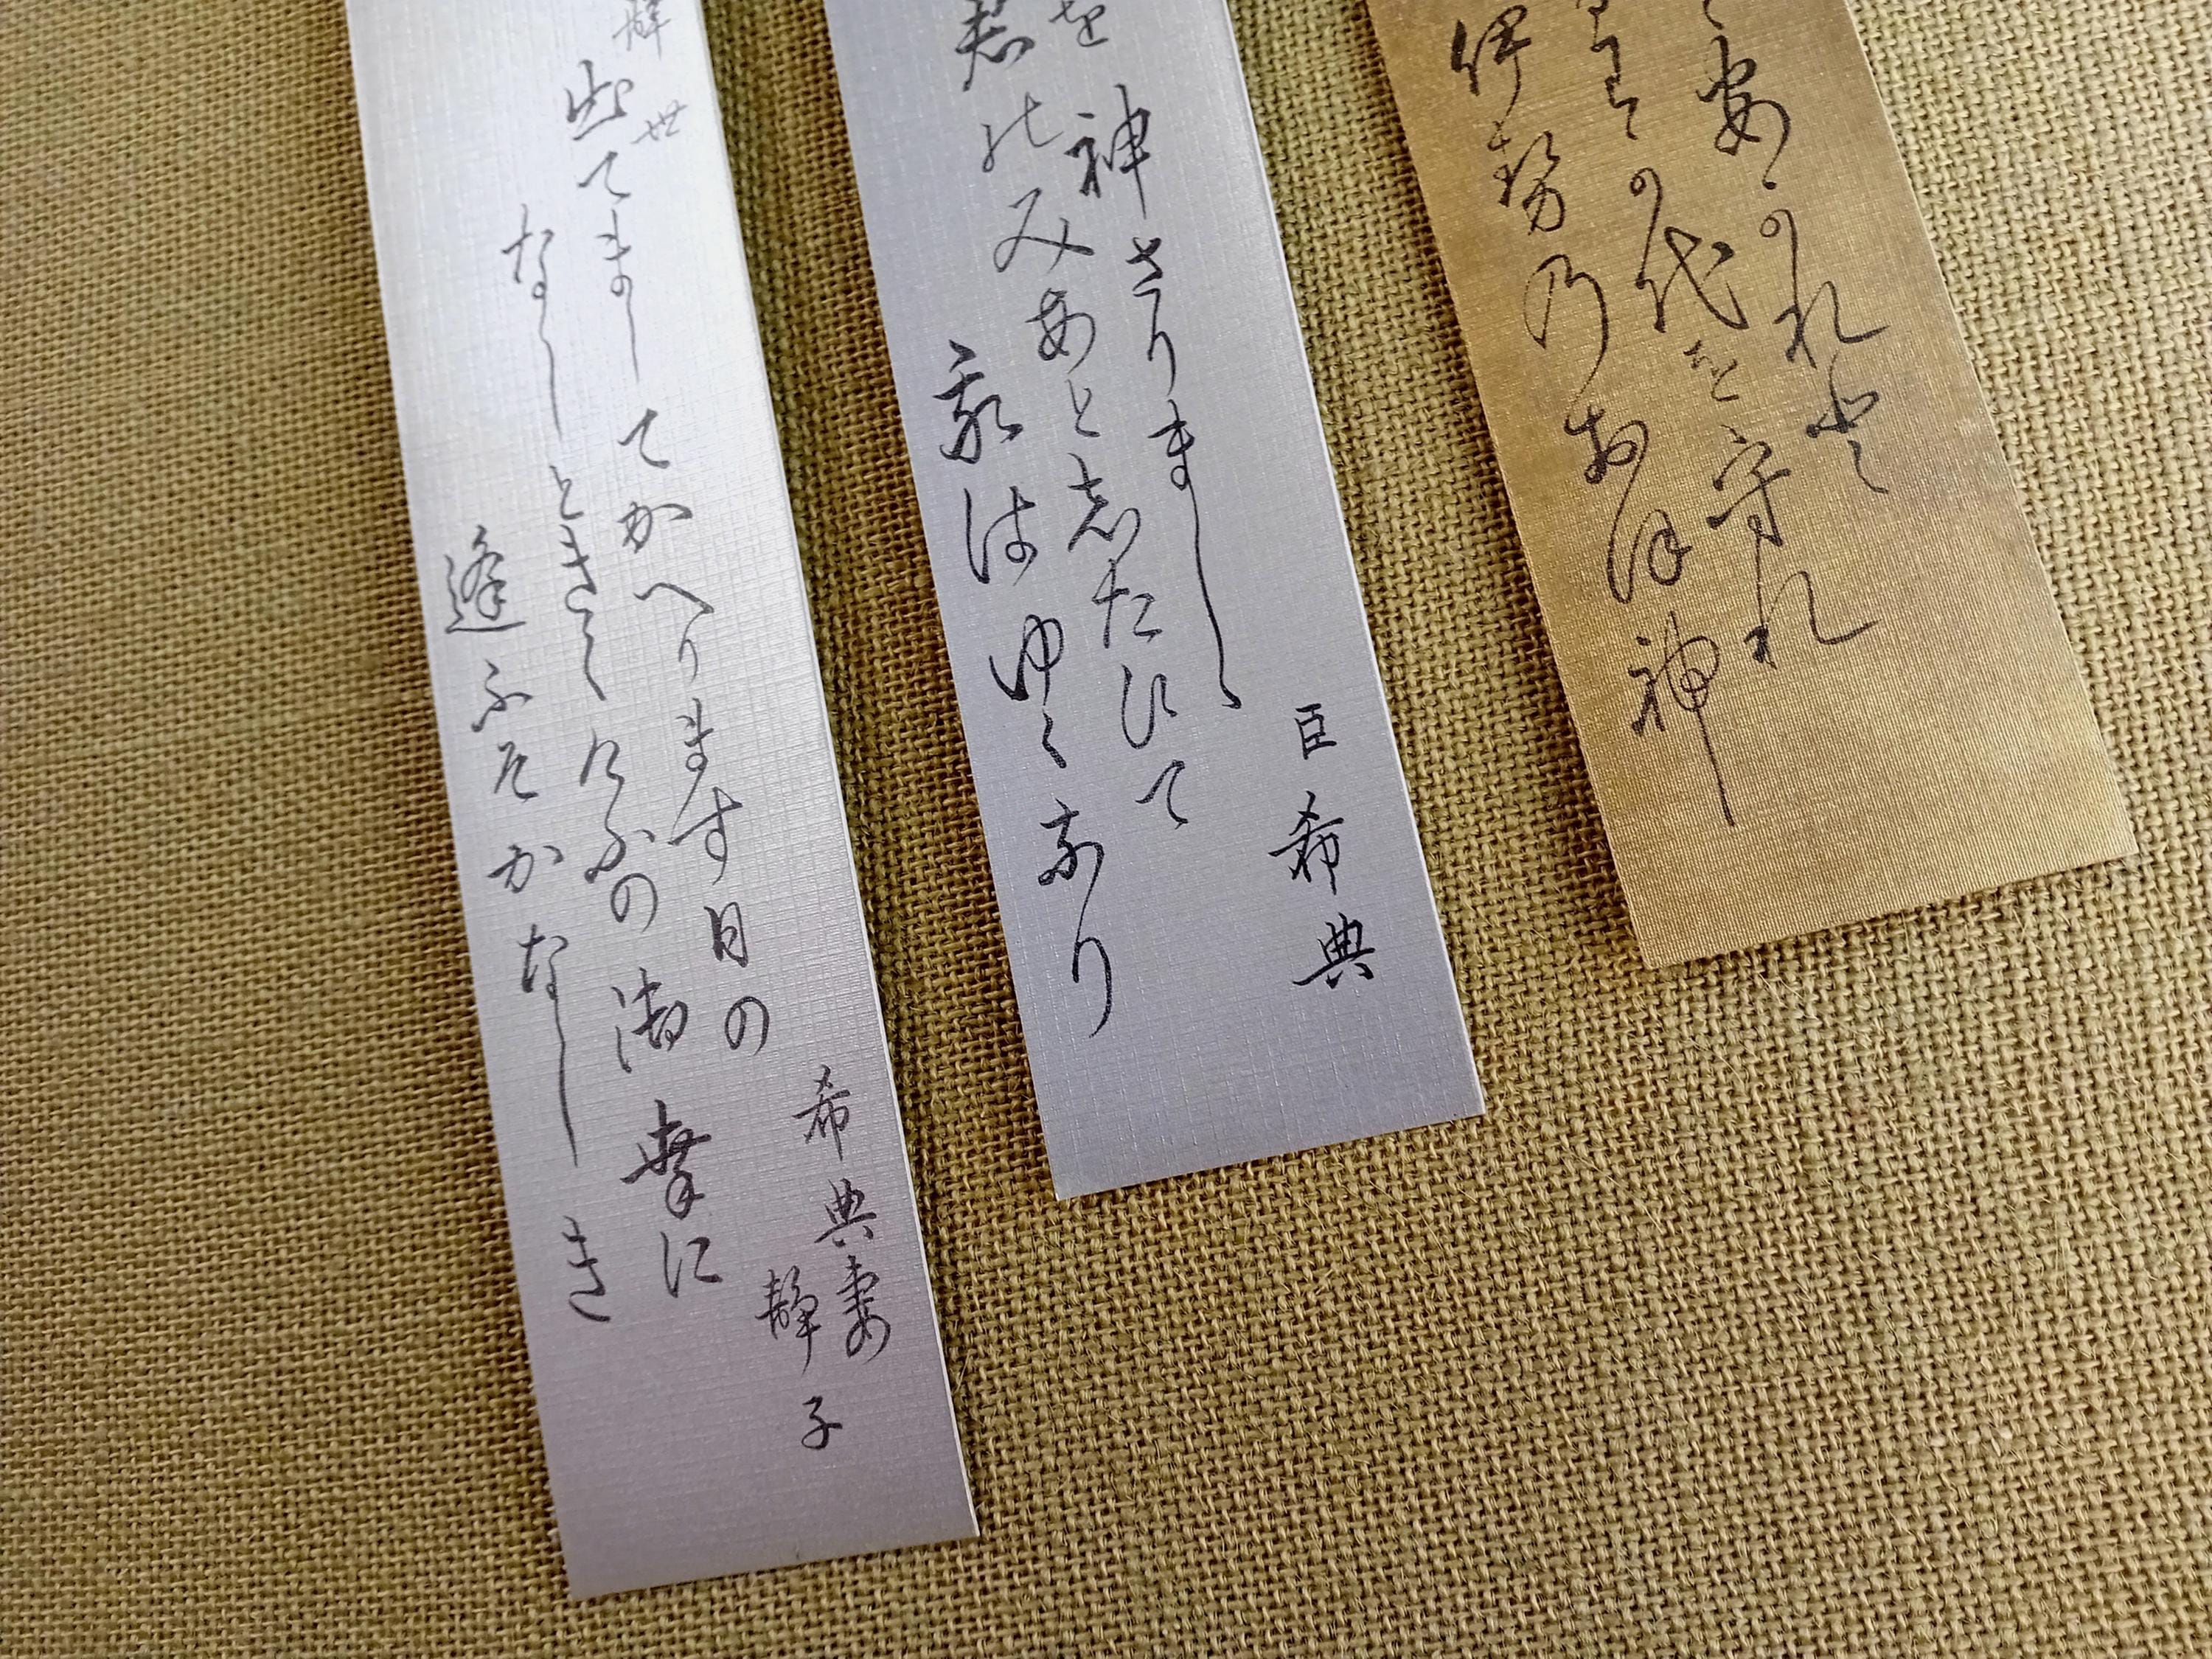 安かれと
わか代を守れ
伊勢乃おほ神
臣希典
を神さりましゝ
君のみあと志たひて
我はゆくなり
希典妻
静子
辞世
出てましてかへります日の
なしときくけふの御幸に
逢ふそかなしき